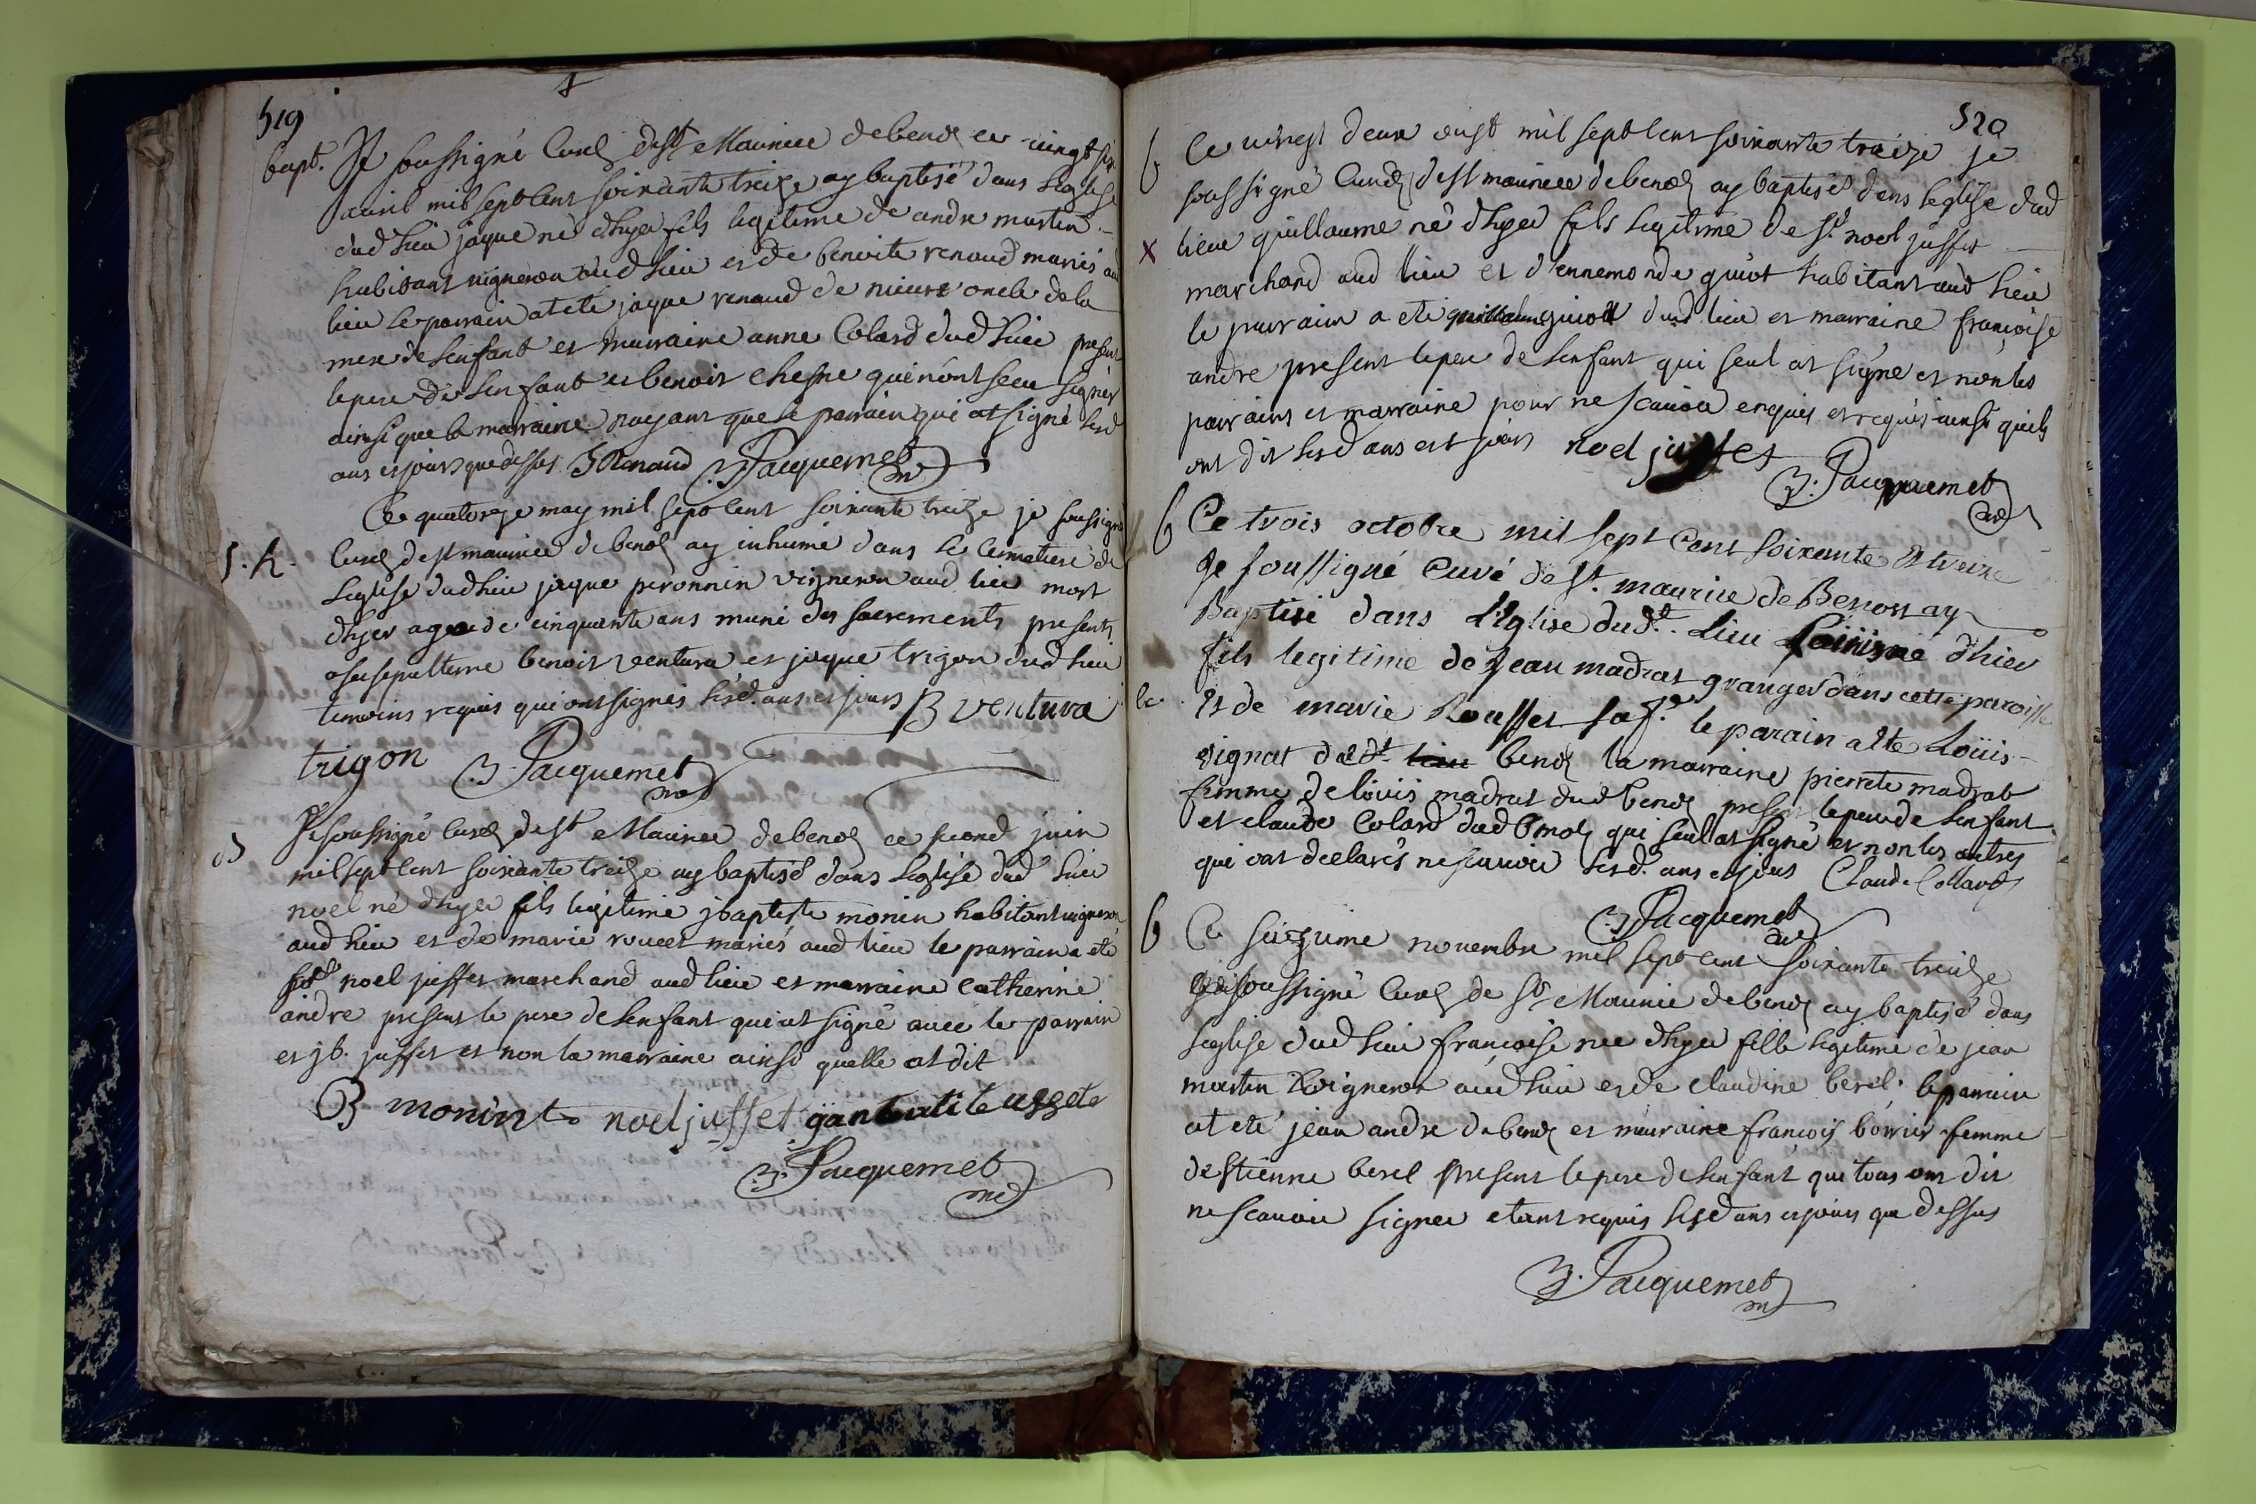 519
bapt. Je soussigné curé de st Maurice de benos ce vingt six
avril mil sept cent soixante treize ay baptisé dans leglise
dud lieu jaque né dhyer fils legitime de andre martin
habitant vigneron aud lieu et de benoite renaud mariés aud
lieu le parrain at eté jaque renaud de oncle de la
mere de lenfant et marraine anne Colard dud lieu present
le pere de lenfant et benoit chesne qui nont sceu signer
ainsi que la marraine nayant que le parrain qui at signé lesd
ans et jours que dessus J Renaud Jacquemet
Ce quatorze may mil sept cent soixante treize je soussigné
S. h. Curé de st maurice de benos ay inhumé dans le cimetiere de
leglise dud lieu jaque peronnin vigneron aud lieu mort
dhyer agé de cinquante ans muni des sacrements presents
a sa sepulture benoit ventura et jaque trigon dud lieu
temoins requis qui ont signés lesd. ans et jours B ventura
trigon Jacquemet
Je soussigné Curé de st Maurice de benos ce second juin
mil sept cent soixante treize ay baptisé dans leglise dud lieu
noel né dhyer fils legitime jbaptiste monin habitant vigneron
aud lieu et de marie rouer mariés aud lieu le parrain a eté
noel juffet marchand aud lieu et marraine catherine
andre present le pere de lenfant qui at signé avec le parrain
et jb. juffet et non la marraine ainsi quelle at dit
B monin noel juffet
Jacquemet
520
b Ce vingt deux aust mil sept cent soixante treize je
soussigné Curé de st maurice de benos ay baptisé dans leglise dud
x lieu guillaume né dhyer fils legitime de sr. noel juffet
marchand aud lieu et dennemonde guiot habitant aud lieu
le parrain a eté guillaume guiot dud lieu et marraine françoise
andre present le pere de lenfant qui seul at signé et non les
parrains et marraine pour ne scavoir enquis et requis ainsi quils
ont dit lesd ans et jours noel juffet
Jacquemet
b Ce trois octobre mil sept cent soixante et treize
Je soussigné Curé de st. maurice de Benos ay
Baptisé dans l'Eglise dudt. Lieu d'hier
fils legitime de Jean madrat granger dans cette paroisse
et de marie Rousset sa fe. le parain a eté Loüis
vignat dudt. benos la marraine pierrete madrat
femme de loüis madrat dud benos present le pere de lenfant
et claude Colard dud benos qui seul at signé et non les autres
qui ont declarés ne scavoir lesd. ans et jours Claude Collard
Jacquemet
b Ce seizieme novembre mil sept cent soixante treize
Je soussigné Curé de st Maurice de benos ay baptisé dans
leglise dud lieu françoise née dhyer fille legitime de jean
martin vigneron aud lieu et de claudine berel. le parrain
at eté jean andre de benos et marraine françois borrier femme
destienne berel present le pere de lenfant qui tous ont dit
ne scavoir signer etant requis lesd ans et jours que dessus
Jacquemet